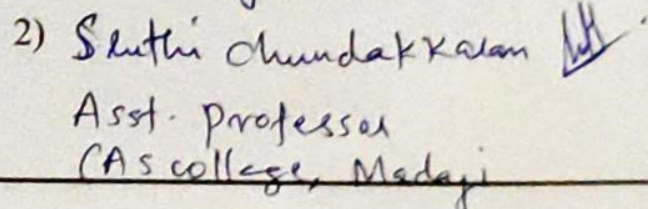 2) Sruthi Chundakkaran
Asst. professor
CAS college, Madayi